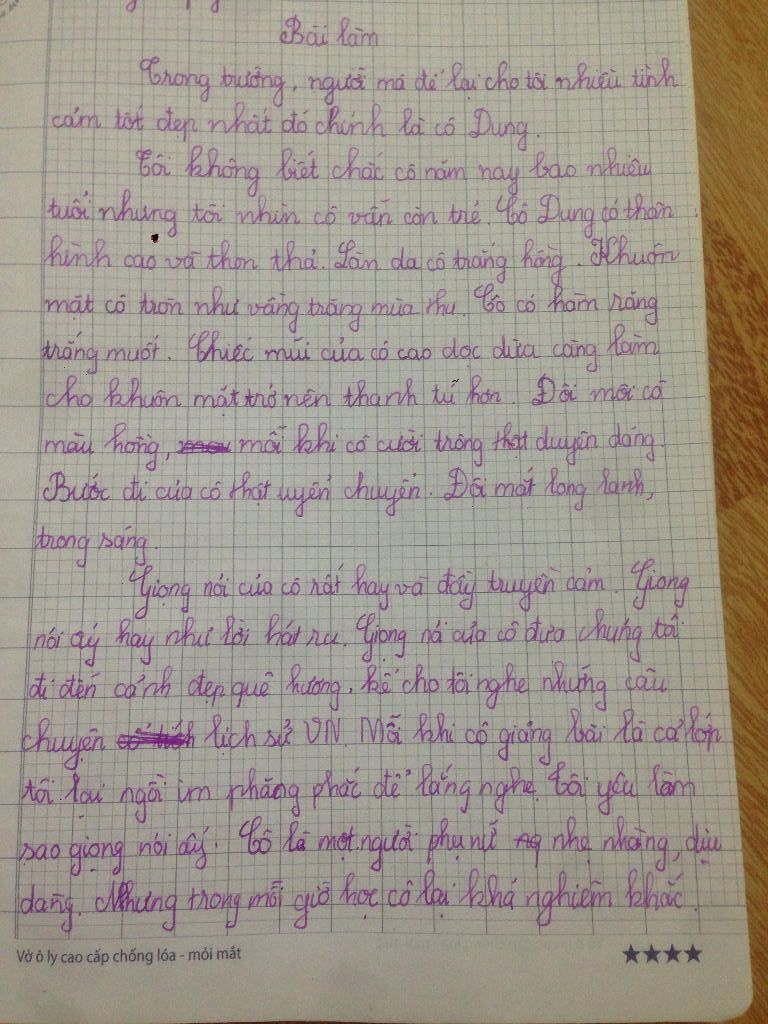 Bài làm
Trong trường, người mà để lại cho tôi nhiều tình
cảm tốt đẹp nhất đó chính là cô Dung.
Tôi không biết chắc cô năm nay bao nhiêu
tuổi nhưng tôi nhìn cô vẫn còn trẻ. Cô Dung có thân
hình cao và thon thả. Làn da cô trắng hồng. Khuôn
mặt cô tròn như vầng trăng mùa thu. Cô có hàm răng
trắng muốt. Chiếc mũi của cô cao dọc dừa càng làm
cho khuôn mặt trở nên thanh tú hơn. Đôi môi cô
màu hồng, mỗi khi cô cười trông thật duyên dáng.
Bước đi của cô thật uyển chuyển. Đôi mắt long lanh,
trong sáng.
Giọng nói của cô rất hay và đầy truyền cảm. Giọng
nói ấy hay như lời hát ru. Giọng nói của cô đưa chúng tôi
đi đến cảnh đẹp quê hương, kể cho tôi nghe những câu
chuyện lịch sử VN. Mỗi khi cô giảng bài là cả lớp
tôi lại ngồi im phăng phắc để lắng nghe. Tôi yêu làm
sao giọng nói ấy. Cô là một người phụ nữ nhẹ nhàng, dịu
dàng. Nhưng trong mỗi giờ học cô lại khá nghiêm khắc.
Vở ô ly cao cấp chống lóa - mỏi mắt